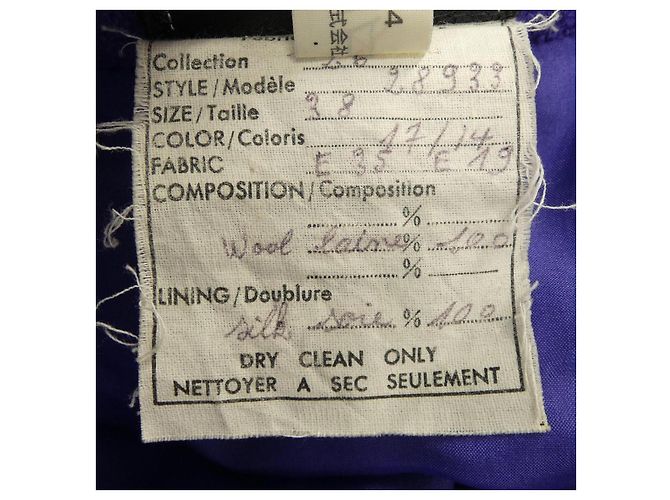 4
式会社
Collection 26
STYLE/Modèle 28933
SIZE/Taille 38
COLOR/Coloris 17/14
FABRIC E 35 E 19
COMPOSITION/Composition
%
Wool Laine % 100
%
LINING/Doublure
silk soie % 100
DRY CLEAN ONLY
NETTOYER A SEC SEULEMENT